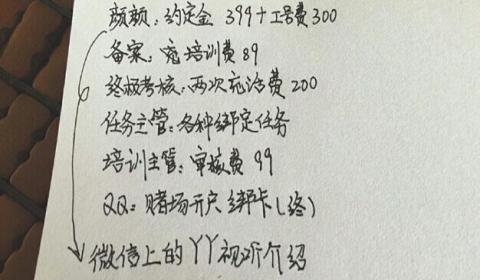 颜颜：约定金 399+工号费300
备案：宛培训费 89
终极考核：两次充话费 200
任务主管：各种绑定任务
培训主管：审核费 99
QQ：赌场开户绑卡(终)
微信上的YY视听介绍